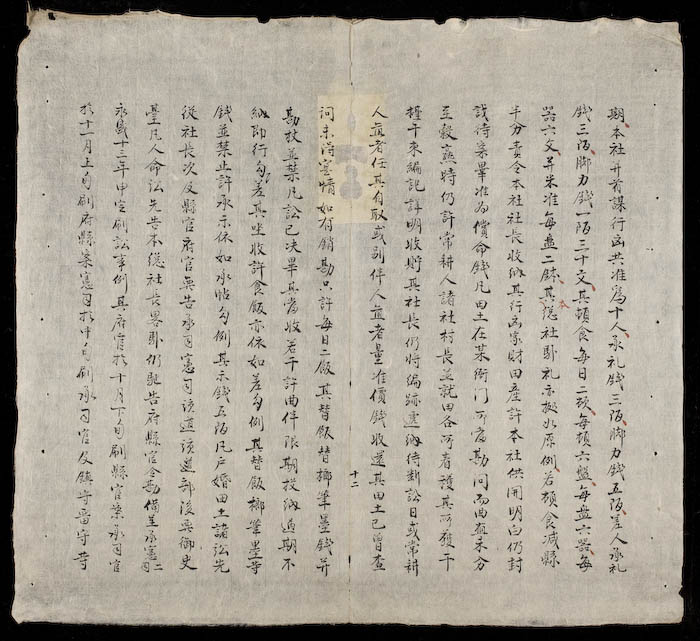 期本社并首謀行凶共准爲十人承礼錢三陌脚力錢五陌差人承礼
錢三陌脚力錢一陌三十文其頓食每日二頓每頓六盤每盤六器每
器六文并朱准每盘二鉢其總社馿礼亦擬水原例若頓食减縣
半分責令本社社長收納其行凶家財田產許本社供開明白仍封
識待案畢准为償命錢凡田土在某衙门所當勘问而曲直未分
至穀熟特仍許常耕人諸社村長並就田各所看護其所獲干
禮干束編記詳明收貯其社長仍將編跡遞納待断訟日或常耕
人直者任其自取或别伴人直者量准價錢收還其田土已曾查
十二
词未得寔情如有銷勘只許每日二飯其替飯替榔筆墨錢并
勘杖並禁凡訟已决畢其當收若干許曲伴限期投納過期不
納即行勾差其坐收許食飯亦依如差勾例其替飯榔筆墨等
錢並禁止許承示依如承帖勾例其示錢五陌凡户婚田土諸訟先
從社長次及縣官府官無告承司憲司該道該道部後奥御史
臺凡人命訟先告本總社長畧馿仍馳告府縣官会勘備呈承憲二司
永盛十三年申定刷訟事例其府官於十月下旬刷縣官案承司官
於十一月上旬刷府縣案憲司於中旬刷承司官及鎮守畱守等